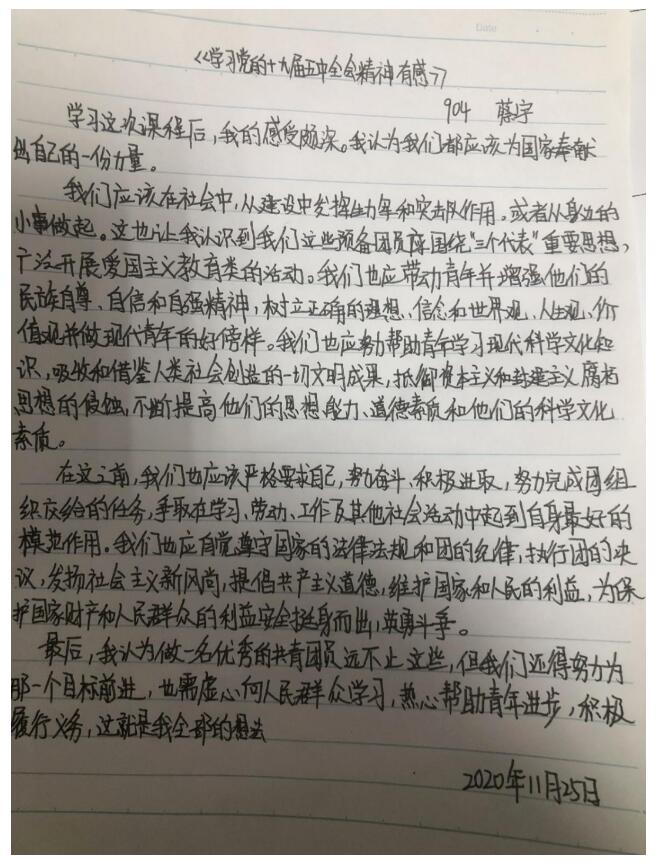 Date
《学习党的十九届五中全会精神有感》
904 蔡宇
学习这次课程后,我的感受颇深。我认为我们都应该为国家奉献
出自己的一份力量。
我们应该在社会中,从建设中发挥生力军和突击队作用。或者从身边的
小事做起。这也让我认识到我们这些预备团员应围绕“三个代表”重要思想,
广泛开展爱国主义教育类的活动。我们也应带动青年并增强他们的
民族自尊、自信和自强精神,树立正确的理想、信念和世界观、人生观、价
值观并做现代青年的好榜样。我们也应努力帮助青年学习现代科学文化知
识,吸收和借鉴人类社会创造的一切文明成果,抵御资本主义和封建主义腐朽
思想的侵蚀,不断提高他们的思想能力、道德素质和他们的科学文化
素质。
在这之前,我们也应该严格要求自己,努力奋斗、积极进取,努力完成团组
织交给的任务,争取在学习、劳动、工作及其他社会活动中起到自身最好的
模范作用。我们也应自觉遵守国家的法律法规和团的纪律,执行团的决
议,发扬社会主义新风尚,提倡共产主义道德,维护国家和人民的利益,为保
护国家财产和人民群众的利益安全挺身而出,英勇斗争。
最后,我认为做一名优秀的共青团员远不止这些,但我们还得努力为
那一个目标前进,也需虚心向人民群众学习,热心帮助青年进步,积极
履行义务,这就是我全部的想法
2020年11月25日